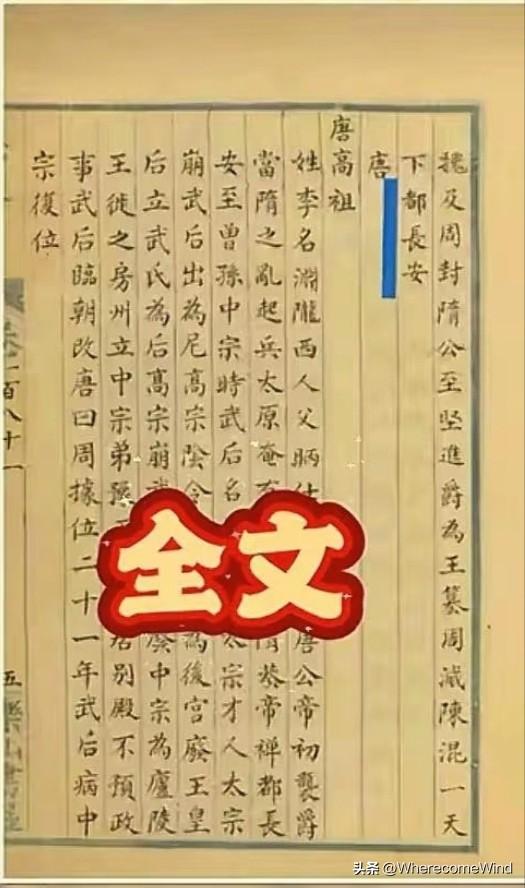 及周封隋公至堅進爵為王篡周滅陳混一天
下都長安
唐
唐高祖
姓李名淵隴西人父昞仕 唐公帝初襲爵
當隋之亂起兵太原奄有 隋恭帝禪都長
安至曾孫中宗時武后名 太宗才人太宗
崩武后出為尼高宗陰令 為後宮廢王皇
后立武氏為后高宗崩武 廢中宗為廬陵
王徙之房州立中宗弟豫王 居別殿不預政
事武后臨朝改唐曰周據位二十一年武后病中
宗復位
百八十一
五
全文
头条 @WherecomeWind